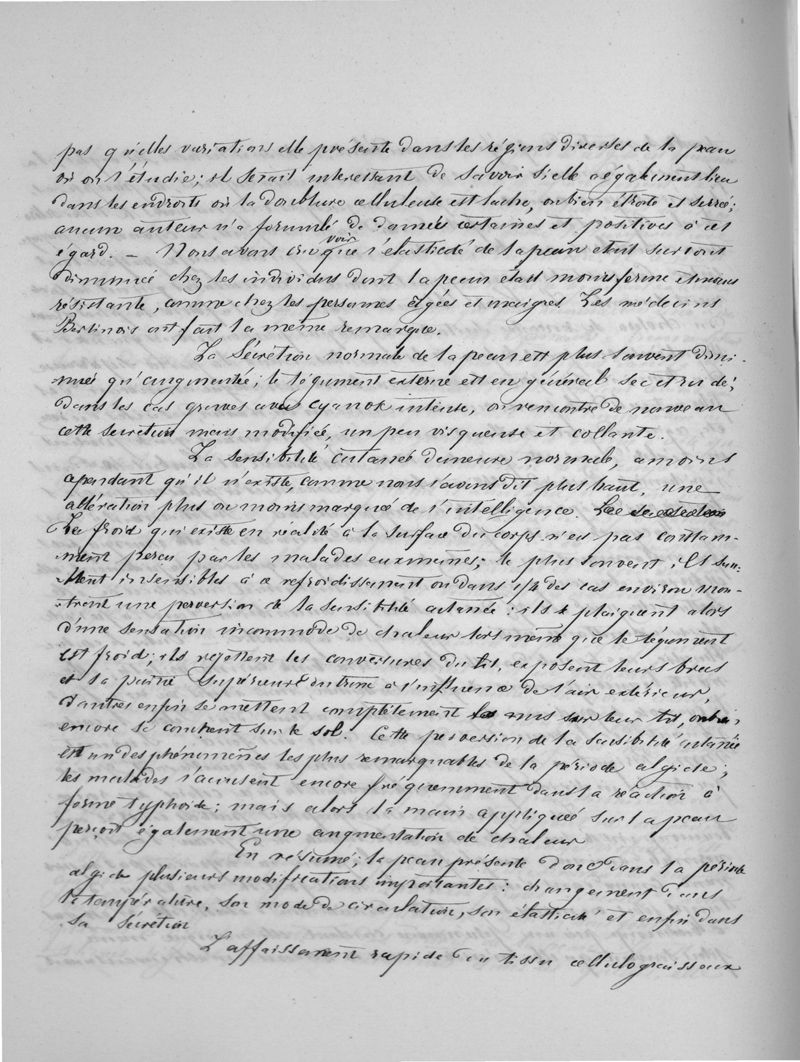 pas quelles variations elle présente dans les régions diverses de la peau
où on l'étudie; il serait interessant de savoir si elle a également lieu
dans les endroits où la doublure celluleuse est lache, ou bien étroite et serrée;
aucun auteur n'a formulé de données certaines et positives à cet
égard. — Nous avons cru voir que l'élasticité de la peau etait surtout
diminuée chez les individus dont la peau était moins ferme et moins
résistante, comme chez les personnes agées et maigres. Les médecins
Berlinois ont fait la même remarque.
La Sécrétion normale de la peau est plus souvent dimi-
nuée qu'augmentée; le tégument externe est en général sec et ridé;
dans les cas graves avec cyanose intense, on rencontre de nouveau
cette secrétion mais modifiée, un peu visqueuse et collante.
La sensibilité cutanée demeure normale, a moins
cependant qu'il n'existe, comme nous l'avons dit plus haut, une
altération plus ou moins marqué de l'intelligence.
Le froid qui existe en réalité à la surface du corps n'est pas constam-
ment percu par les malades eux mêmes; le plus souvent ils sem-
blent insensibles à ce refroidissement ou dans 1/4 des cas environ mon-
trent une perversion de la sensibilité cutanée: ils se plaignent alors
d'une sensation incommode de chaleur lors même que le tégument
est froid; ils rejettent les couvertures du lit, exposent leurs bras
et la partie supérieure du tronc à l'influence de l'air extérieur,
d'autres enfin se mettent complètement nus sur leur lit, ou bien
encore se couchent sur le sol. Cette perversion de la sensibilité cutanée
est un des phénomènes les plus remarquables de la période algide;
les malades l'accusent encore fréquemment dans la réaction à
forme typhoïde; mais alors la main appliquée sur la peau
perçoit également une augmentation de chaleur
En résumé; la peau présente donc dans la période
algide plusieurs modifications importantes: changement dans
la température, son mode de circulation, son élasticité et enfin dans
sa Sécrétion
L'affaissement rapide du tissu cellulo graisseux